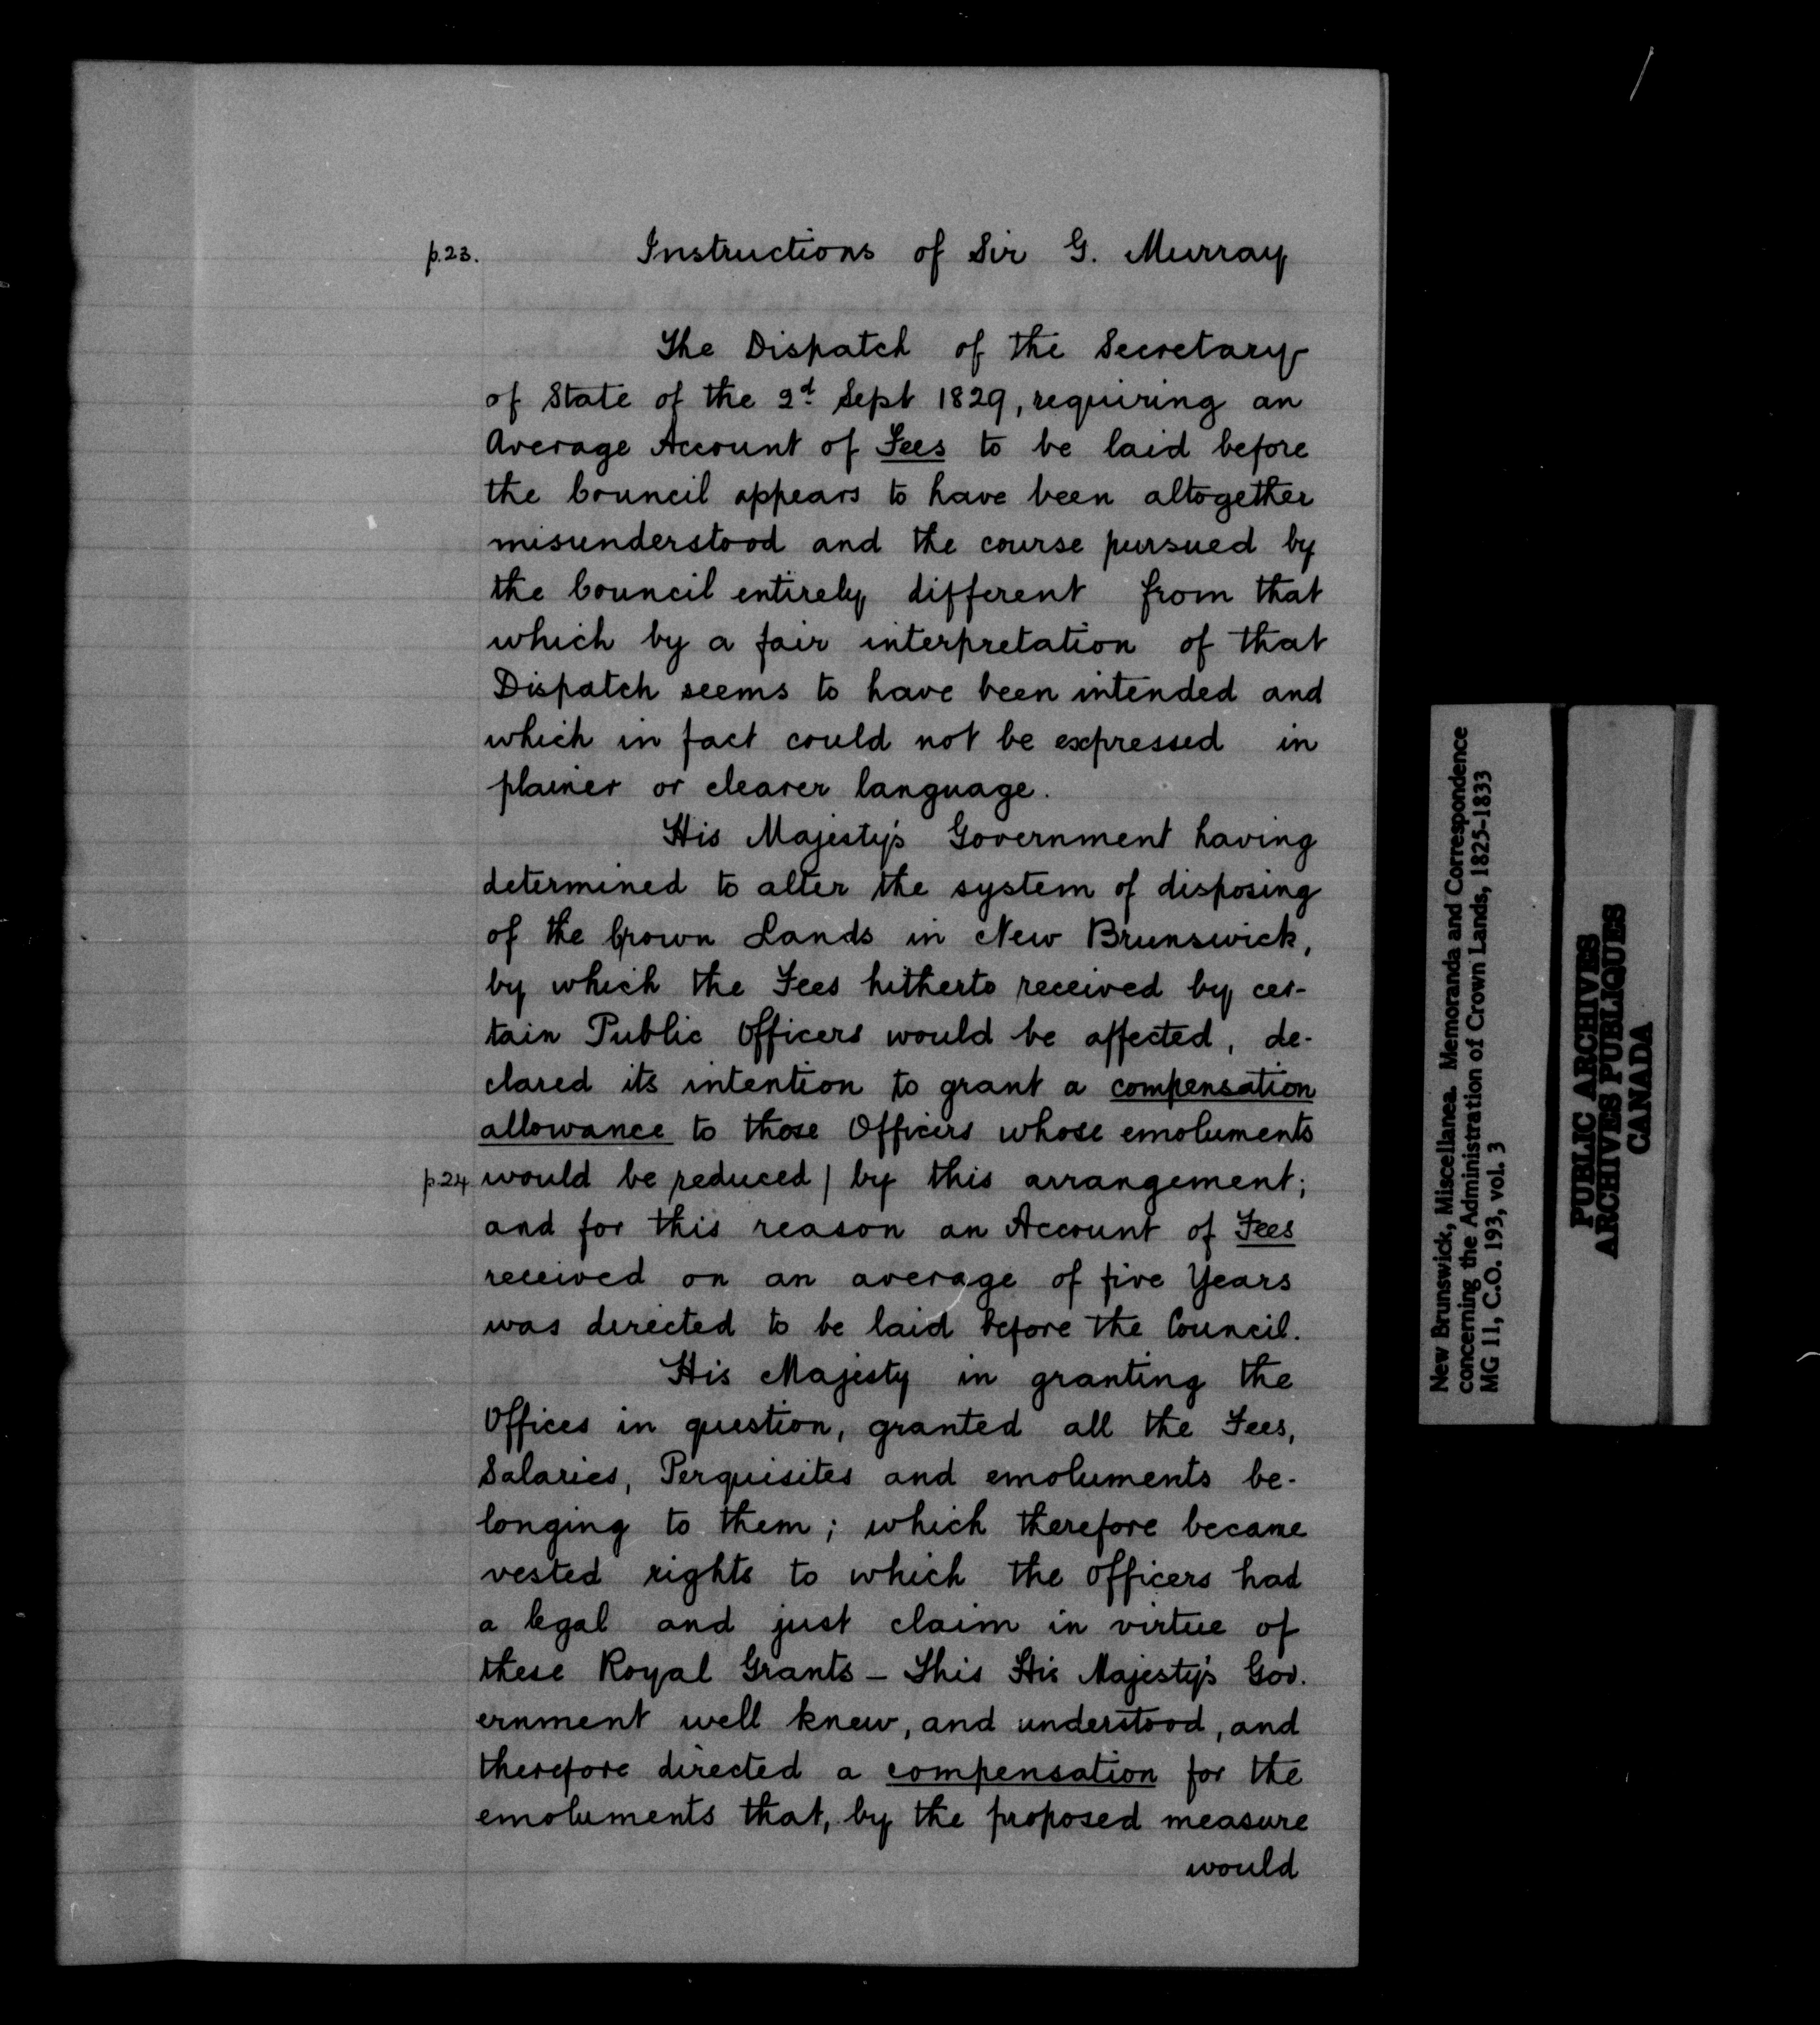 p.23. Instructions of Sir G. Murray
The Dispatch of the Secretary
of State of the 2d Sept 1829, requiring an
Average Account of Fees to be laid before
the Council appears to have been altogether
misunderstood and the course pursued by
the Council entirely different from that
which by a fair interpretation of that
Dispatch seems to have been intended and
which in fact could not be expressed in
plainer or clearer language.
His Majesty's Government having
determined to alter the system of disposing
of the Crown Lands in New Brunswick,
by which the Fees hitherto received by cer-
tain Public Officers would be affected, de-
clared its intention to grant a compensation
allowance to those Officers whose emoluments
p.24 would be reduced / by this arrangement;
and for this reason an Account of Fees
received on an average of five Years
was directed to be laid before the Council.
His Majesty in granting the
Offices in question, granted all the Fees,
Salaries, Perquisites and emoluments be-
longing to them; which therefore became
vested rights to which the Officers had
a legal and just claim in virtue of
these Royal Grants – This His Majesty's Gov-
ernment well knew, and understood, and
therefore directed a compensation for the
emoluments that, by the proposed measure
would
New Brunswick, Miscellanea. Memoranda and Correspondence
concerning the Administration of Crown Lands, 1825-1833
MG 11, C.O. 193, vol. 3
PUBLIC ARCHIVES
ARCHIVES PUBLIQUES
CANADA